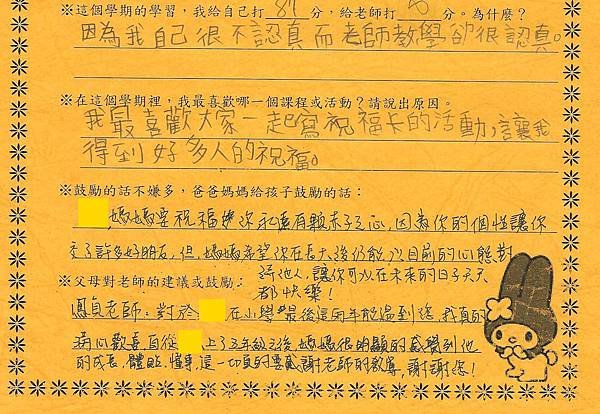 ※這個學期的學習，我給自己打 87 分，給老師打 分。為什麼？
因為我自己很不認真而老師教學卻很認真。
※在這個學期裡，我最喜歡哪一個課程或活動？請說出原因。
我最喜歡大家一起寫祝福卡的活動，讓我
得到好多人的祝福。
※鼓勵的話不嫌多，爸爸媽媽給孩子鼓勵的話：
，媽媽要祝福你永遠有顆赤子之心，因為你的個性讓你
交了許多好朋友，但，媽媽希望你在長大後仍能以目前的心態對
待他人，讓你可以在未來的日子天天
都快樂！
※父母對老師的建議或鼓勵：
鳳貞老師：對於 在小學最後這兩年能遇到您，我真的
滿心歡喜，自從 上了五年級之後，媽媽很明顯的感覺到他
的成長、體貼、懂事，這一切真的要感謝老師的教導，謝謝您！